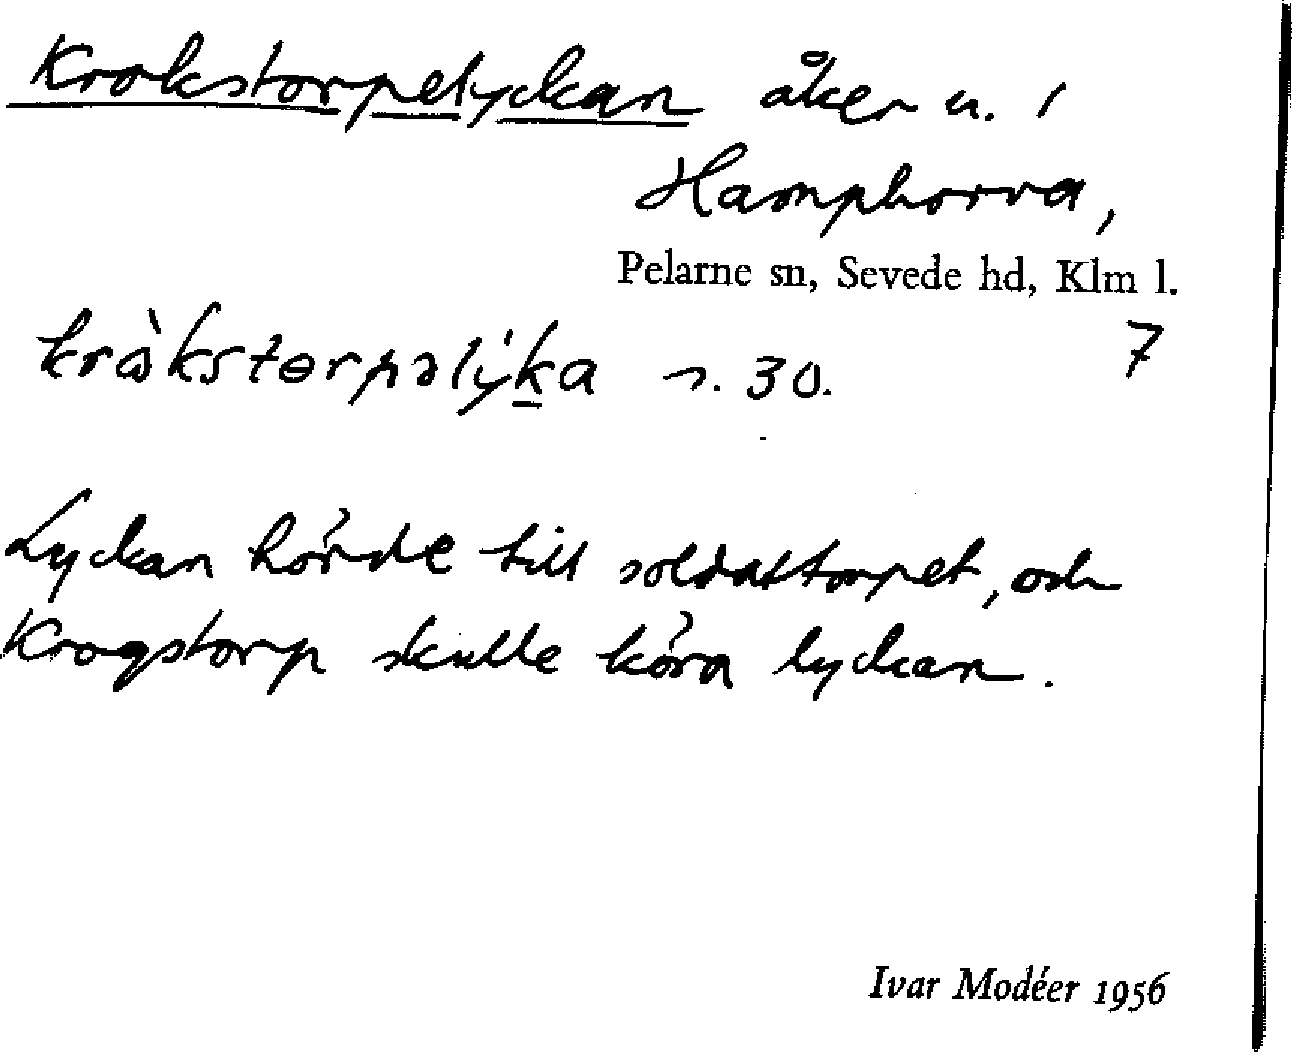 Krokstorpelyckan åker u. i
Hamphorva,
Pelarne sn, Sevede hd, Klm l.
7
kràkstɵrpəlýka s. 30.
Lyckan hörde till soldattorpet, och
Krogstorp skulle köra lyckan.
Ivar Modéer 1956